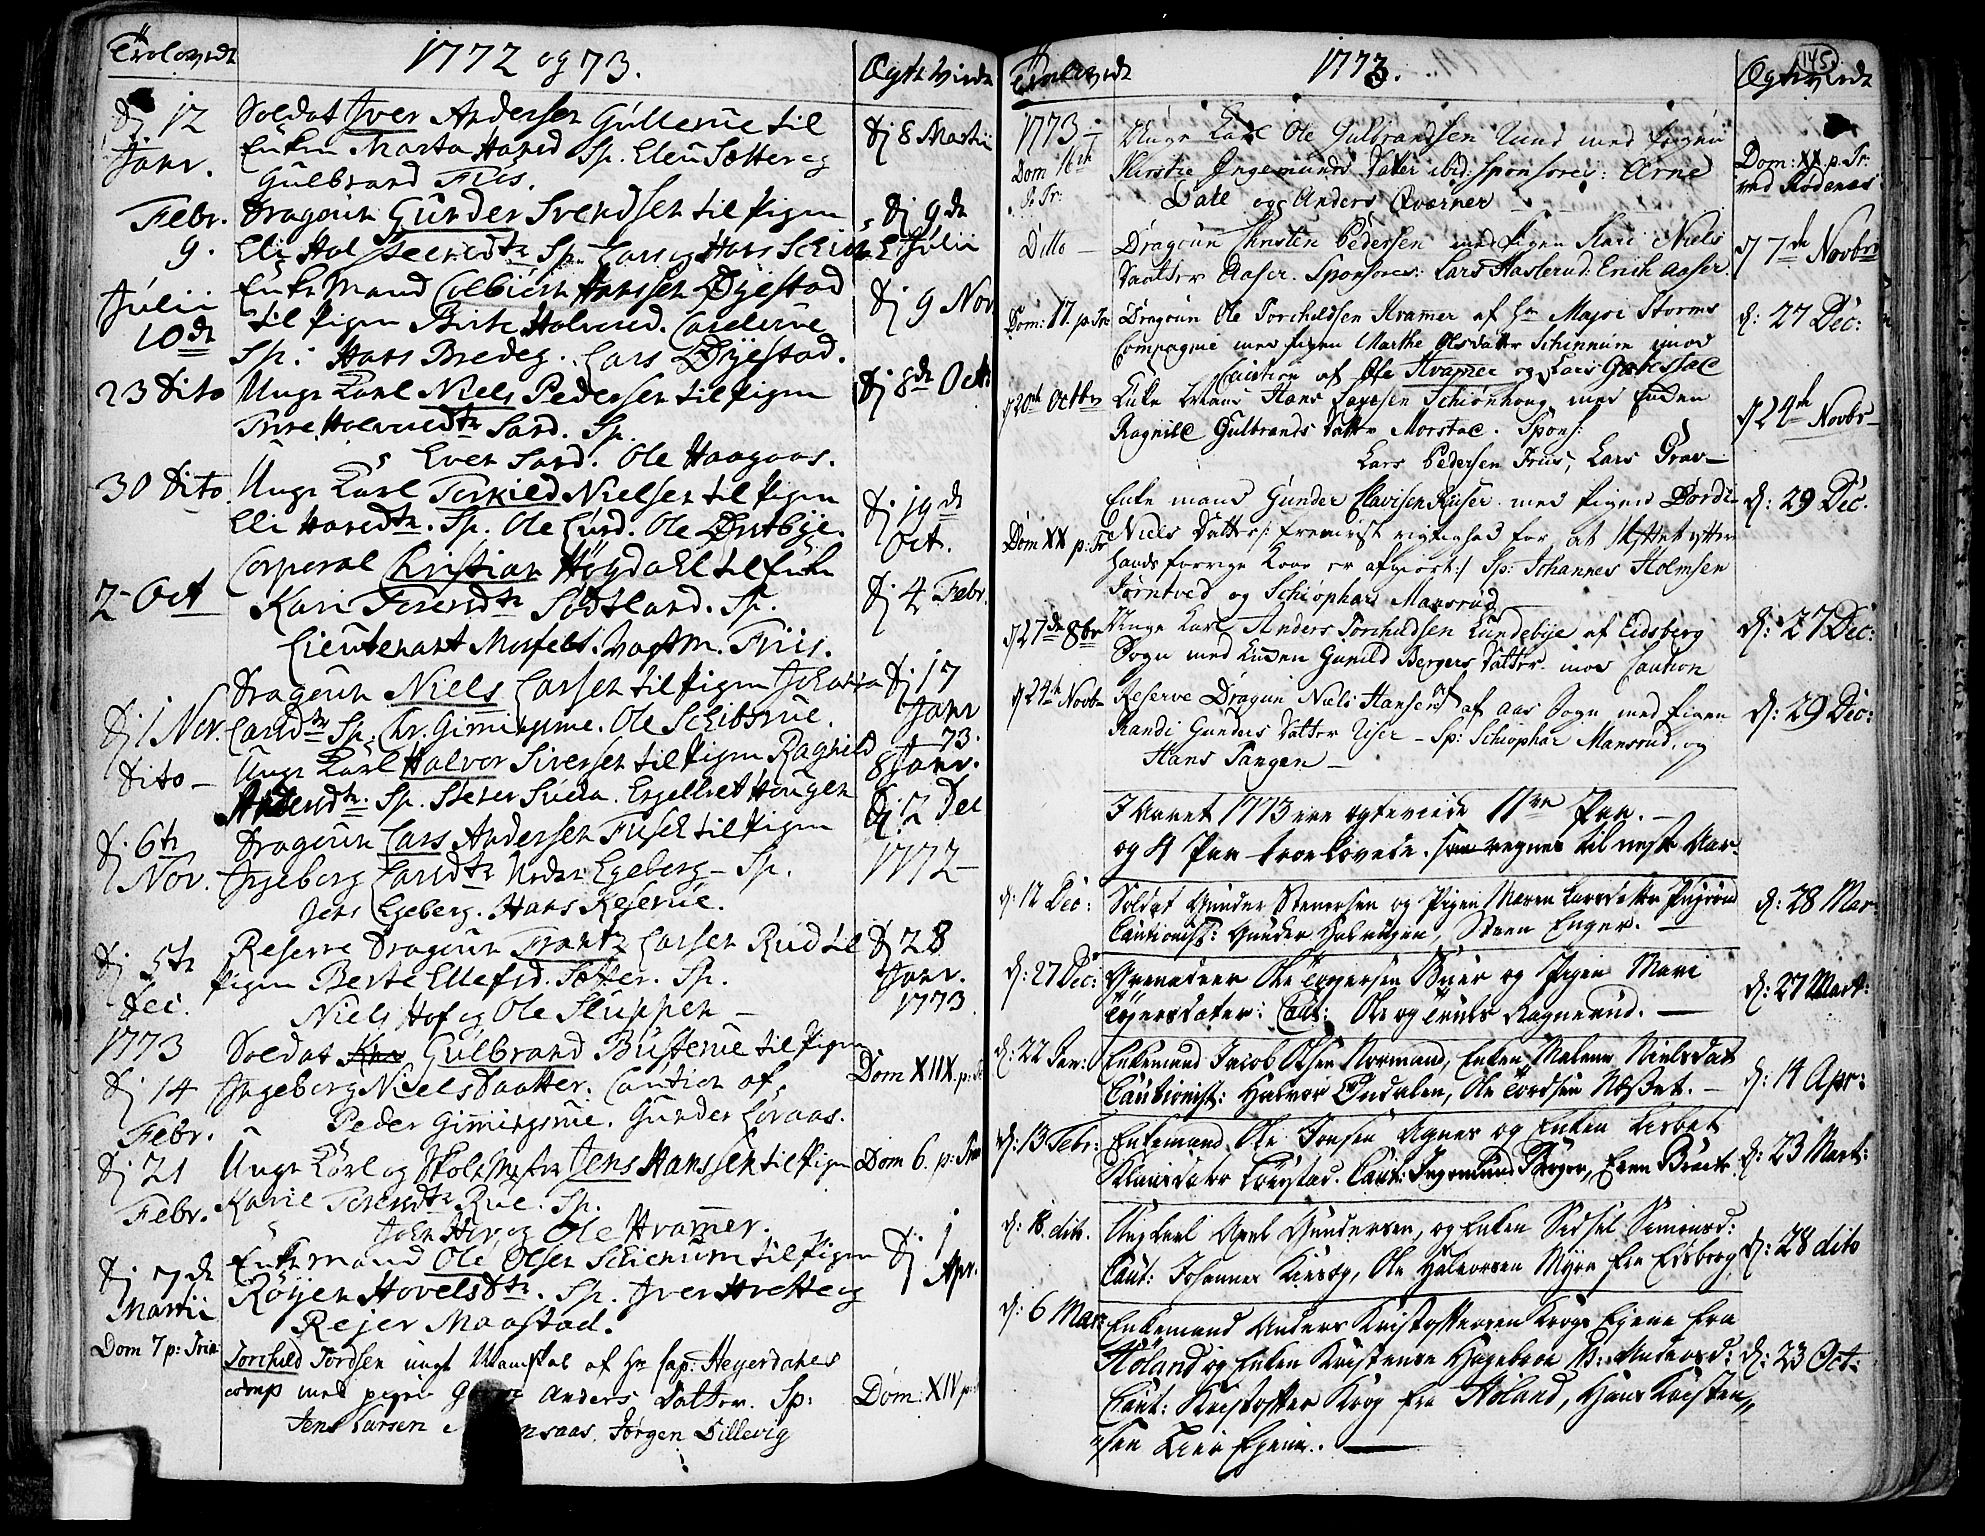 Trolovede
1772 og 73.
Ægte Viede
Dj 12 Janr.
Soldat Jver Andersen Gullerue til
Enken Marta Hansd Sp. Elen Sætter og
Gulbrand Friis.
Dj 8 Martii
Febr. 9.
Dragoun Gunder Svendsen til Pigen
Eli Sp. Lars og Hans
Dj 9de Julii
Julii 10de
Enke Mand Colbiörn Hanssen Dÿestad
til Pigen Birte Halvorsd.
Sp. Hans Bredeg. Lars Dÿestad.
Dj 9 Nov
23 Dito
Unge Karl Niels Pedersen til Pigen
Sand. Sp.
Even Sand. Ole Haagaas.
Dj 8de Octb
30 Dito
Unge Karl Terkield Nielsen til Pigen
Eli Hansdtr. Sp. Ole Lund. Ole Østbÿe.
Dj 19de Oct.
2 Oct
Corporal Christian Höÿdahl til Enke
Kari Sp.
Lieutenant Mosfeldt. Vagtm. Friis.
Dj 4 Febr.
Dj 1 Nov.
Dragoun Niels Larsen til Pigen Johanna
Larsdtr Sp. Chr. Gimmingsrue. Ole Schibsrue.
Dj 17 Janr 73.
Dito –
Unge Karl Halvor Siversen til Pigen Ragnild
Andersdtr. Sp. Engelbret Haugen
8 Janr.
Dj 6te Nov.
Dragoun Lars Andersen til Pigen
Ingeborg Larsdtr Egeberg – Sp.
Jens Egeberg. Hans
Dj 2 Dec
1772
Dj 5te Dec.
Reserve Dragoun Frantz Larsen Rud til
Pigen Berte Ellefsd. Sp.
Niels Hof og Ole Sluppen –
Dj 28 Janr. 1773
1773
Dj 14 Febr.
Soldat Gulbrand Busterue til Pigen
Ingeborg Niels Daatter. Caution af
Peder Gimmingsrue. Gunder Löraas.
Dom XIIX. p: Tr
Dj 21 Febr.
Unge Karl og Skolemester Jens Hanssen til Pigen
Karie Rue. Sp.
John og Ole Kramer.
Dom 6. p: Trin
Dj 7de Martii
Enke Mand Ole Olsen Schienum til Pigen
Röÿen Hovelsdtr. Sp. Jver og
Rejer Maastad.
Dj 1 Apr.
Dom 7 p: Trin
Torchild Tordsen ungt Mandskab af Hr Cap: Heyerdahls
comp med pigen Anders Datter. Sp:
Jens Larsen Jørgen Lillevig
Dom: XIV p:
145
Trolovede
1773.
Ægteviede
1773
Dom 16de p: Tr:
Unge Karl Ole Gulbrandsen Lund med Pigen
Kirstie Ingemunds Datter ibid: Sponsores: Arne
Dale og Anders Qværner
Dom: XX p. Tr.
ved Rødenæs
Ditto –
Dragoun Christen Pedersen med Pigen Kari Niels
Daatter Aaser. Sponsores: Lars Haslerud. Erich Aaser.
d 7de Novbr
Dom: 17. p. Tr
Dragoun Ole Torchildsen Kramer af Hr Major Storms
Compagnie med Pigen Marthe Olsdatter Schinnum imod
Caution af Ole Kramer og Lars
d: 27 Dec:
d 20de Octbr
Enke Mand Hans med Enken
Ragnild Gulbrands Datter Morstad. Spons:
Lars Pedersen Friis, Lars Grav –
d 24de Novbr
Dom XX p: Tr
Enke mand Gunder med Pigen Bordi
Niels Datter /: fremvist rigtighed for at Skiftet efter
hands forrige Kone er afgiort :/ Sp: Johannes Holmsen
Tørntved og Schiophar Mansrud
d: 29 Dec.
d 27de 8br
Unge Karl Anders Torchildsen Lundebye af Eidsberg
Sogn med Enken Gunild Bergers Datter imod Caution
d: 27 Dec:
d 24de Novbr
Reserve Dragun Niels Hansen af Aas Sogn med Pigen
Randi Gunders Datter – Sp: Schiophar Mansrud, og
Hans Tangen –
d: 29 Dec:
I Aaret 1773 ere ægteviede 11ve Par. –
og 4 Par troelovede. som regnes til neste Aar.
d: 12 Dec:
Soldat Gunder Stenersen og Pigen Maren Larsdatter
Cautionist: Gunder Steen Enger. –
d: 28 Mar
d: 27 Dec:
Grenadeer Ole Buer og Pigen Mari
Caut: Ole og Truls Ragnerud. –
d: 27 Mart:
d: 22 Jan:
Enkemand Jacob Olsen Normand, Enken Malene Nielsdat
Cautionist: Halvor Ole Tordsen Næsset. –
d: 14 Apr:
d: 13 Febr:
Enkemand Ole Jonsen Agnes og Enken Lisbet
Caut: Ingemund Berger, Even
d: 23 Mart:
d: 18. dito.
Ungkarl Axel Gundersen, og Enken Sidsel Simensd:
Caut: Johannes Ole Halvorsen Myre fra Eidsberg
d: 28 dito
d: 6 Mar:
Enkemand Anders Kristoffersen Krog fra
Høland og Enken Kristense Andersd:
Caut: Kristoffer Krog fra Høland, Hans Kristen„
„sen
d: 23 Oct: